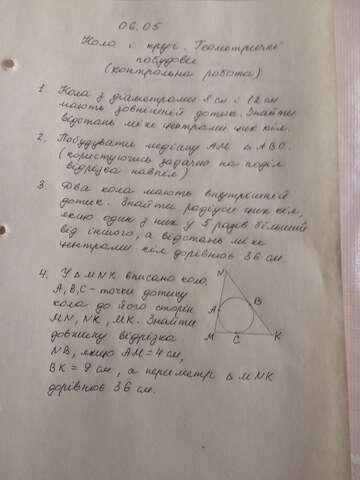 06.05
Коло і круг. Геометричні
побудови
(контрольна робота)
1. Кола з діаметрами 8 см і 12 см
мають зовнішній дотик. Знайти
відстань між центрами цих кіл.
2. Побудувати медіану AM △ ABC.
(користуючись задачею на поділ
відрізка навпіл)
3. Два кола мають внутрішній
дотик. Знайти радіуси цих кіл,
якщо один з них у 5 разів більший
від іншого, а відстань між
центрами кіл дорівнює 36 см.
4. У △ MNK вписано коло,
A, B, C - точки дотику
кола до його сторін
MN, NK, MK. Знайти
довжину відрізка
NB, якщо AM = 4 см,
BK = 9 см, а периметр △ MNK
дорівнює 36 см.
N
B
A
M C K